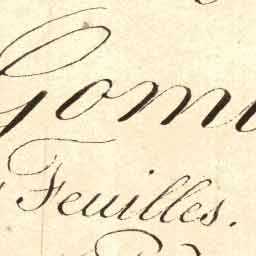 Gom
Feuilles.